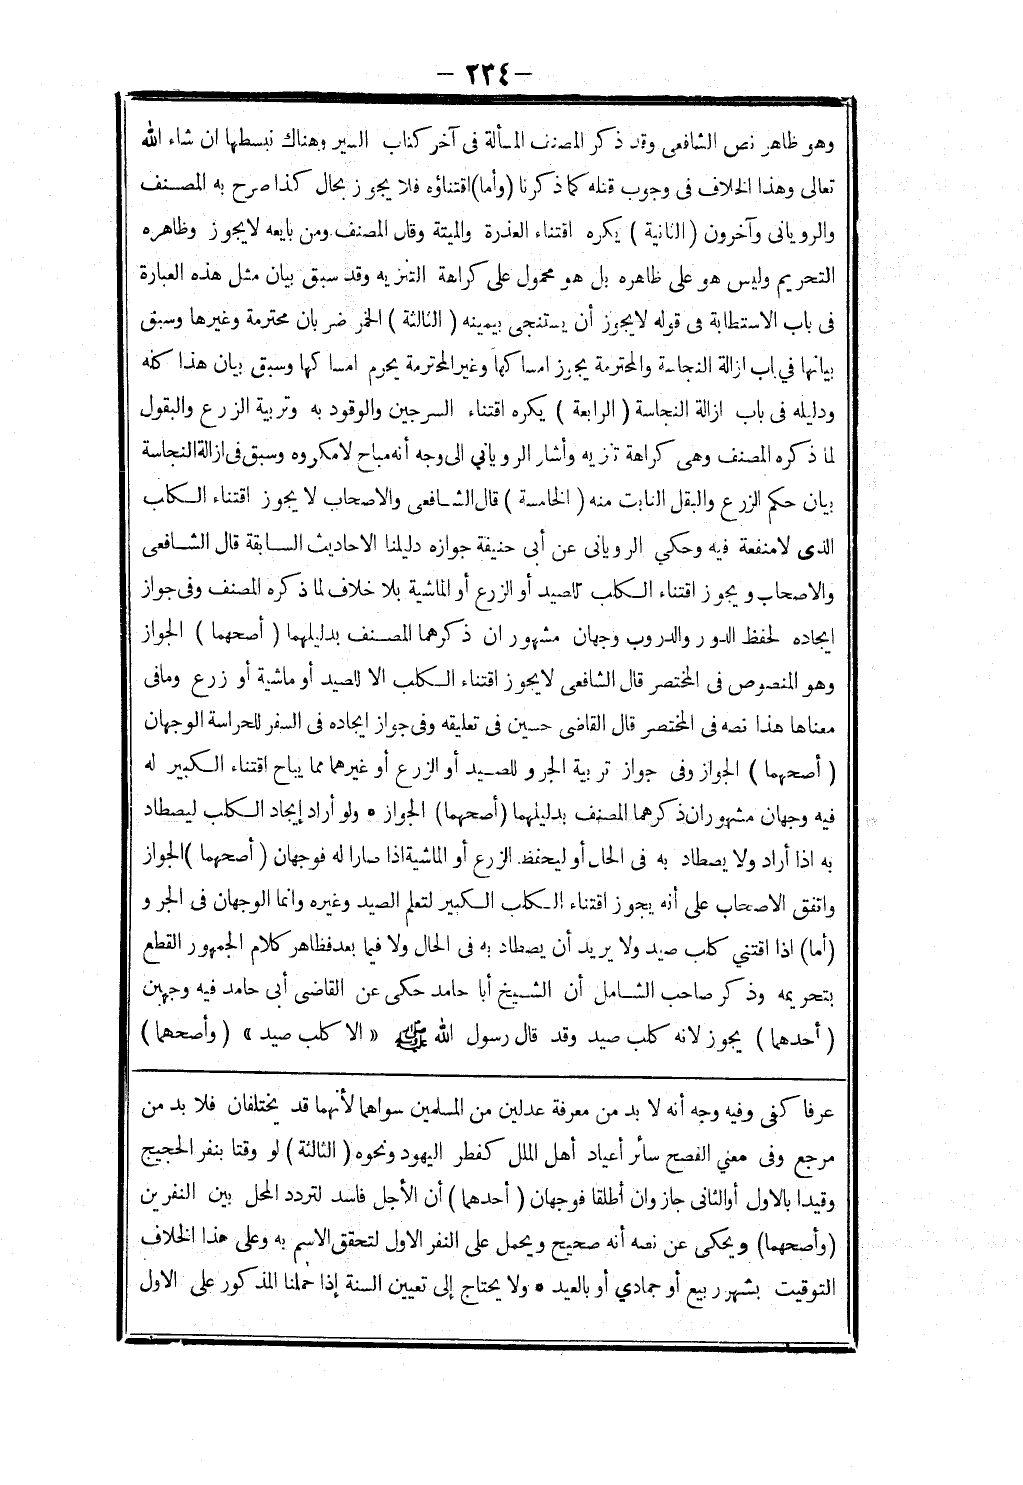 — ٢٣٤ —
وهو ظاهر نص الشافعى وقد ذكر المصنف المسألة فى آخر كتاب السير وهناك نبسطها ان شاء الله
تعالى وهذا الخلاف فى وجوب قتله كما ذكرنا (وأما) اقتناؤه فلا يجوز بحال كذا صرح به المصنف
والرويانى وآخرون ( الثانية ) يكره اقتناء العذرة والميتة وقال المصنف ومن بايعه لايجوز وظاهره
التحريم وليس هو على ظاهره بل هو محمول على كراهة التنزيه وقد سبق بيان مثل هذه العبارة
فى باب الاستطابة فى قوله لايجوز أن يستنجى بيمينه ( الثالثة ) الخمر ضربان محترمة وغيرها وسبق
بيانها في باب ازالة النجاسة والمحترمة يجوز امساكها وغير المحترمة يحرم امساكها وسبق بيان هذا كله
ودليله فى باب ازالة النجاسة ( الرابعة ) يكره اقتناء السرجين والوقود به وتربية الزرع والبقول
لما ذكره المصنف وهى كراهة تنزيه وأشار الروياني الى وجه أنه مباح لامكروه وسبق فى ازالة النجاسة
بيان حكم الزرع والبقل النابت منه ( الخامسة ) قال الشافعى والاصحاب لا يجوز اقتناء الكلب
الذى لامنفعة فيه وحكي الرويانى عن أبى حنيفة جوازه دليلنا الاحاديث السابقة قال الشافعى
والاصحاب ويجوز اقتناء الكلب للصيد أو الزرع أو الماشية بلا خلاف لما ذكره المصنف وفى جواز
ايجاده لحفظ الدور والدروب وجهان مشهوران ذكرهما المصنف بدليلهما ( أصحهما ) الجواز
وهو المنصوص فى المختصر قال الشافعى لايجوز اقتناء الكلب الا للصيد أو ماشية أو زرع ومافى
معناها هذا نصه فى المختصر قال القاضى حسين فى تعليقه وفى جواز ايجاده فى السفر للحراسة الوجهان
( أصحهما ) الجواز وفى جواز تربية الجرو للصيد أو الزرع أو غيرهما مما يباح اقتناء الكبير له
فيه وجهان مشهوران ذكرهما المصنف بدليلهما (أصحهما) الجواز * ولو أراد إيجاد الكلب ليصطاد
به اذا أراد ولا يصطاد به فى الحال أو ليحفظ الزرع أو الماشية اذا صارا له فوجهان ( أصحهما ) الجواز
واتفق الاصحاب على أنه يجوز اقتناء الكلب الكبير لتعلم الصيد وغيره وانما الوجهان فى الجرو
(أما) اذا اقتني كلب صيد ولا يريد أن يصطاد به فى الحال ولا فيما بعد فظاهر كلام الجمهور القطع
بتحريمه وذكر صاحب الشامل أن الشيخ أبا حامد حكى عن القاضى أبى حامد فيه وجهين
( أحدهما ) يجوز لانه كلب صيد وقد قال رسول الله ﷺ « الا كلب صيد » ( وأصحهما )
عرفا كفى وفيه وجه أنه لا بد من معرفة عدلين من المسلمين سواهما لأنهما قد يختلفان فلا بد من
مرجع وفى معني الفصح سائر أعياد أهل الملل كفطر اليهود ونحوه ( الثالثة ) لو وقتا بنفر الحجيج
وقيدا بالاول أو الثانى جاز وان أطلقا فوجهان ( أحدهما ) أن الأجل فاسد لتردد المحل بين النفرين
(وأصحهما) ويحكى عن نصه أنه صحيح ويحمل على النفر الاول لتحقق الاسم به وعلى هذا الخلاف
التوقيت بشهر ربيع أو جمادي أو بالعيد * ولا يحتاج إلى تعيين السنة إذا حملنا المذكور على الاول